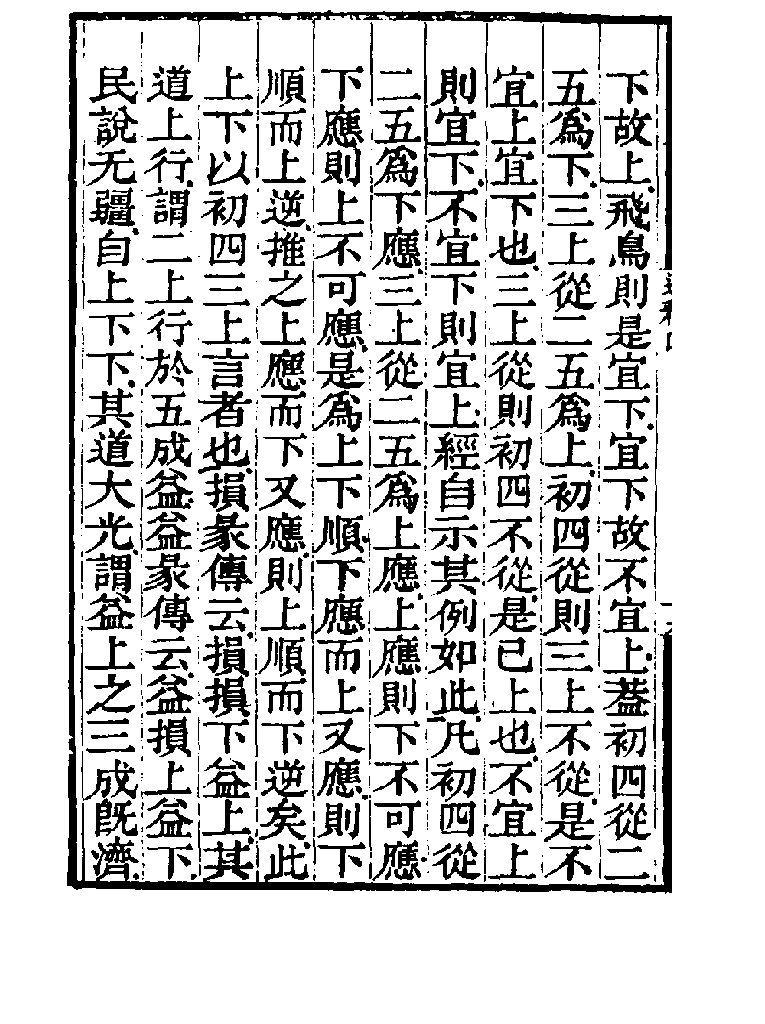 下故上飛鳥則是宜下宜下故不宜上葢初四從二
五爲下三上從二五爲上初四從則三上不從是不
宜上宜下也三上從則初四不從是已上也不宜上
則宜下不宜下則宜上經自示其例如此凡初四從
二五爲下應三上從二五爲上應上應則下不可應
下應則上不可應是爲上下順下應而上又應則下
順而上逆推之上應而下又應則上順而下逆矣此
上下以初四三上言者也損彖傳云損損下益上其
道上行謂二上行於五成益益彖傳云益損上益下
民說无疆自上下下其道大光謂益上之三成旣濟